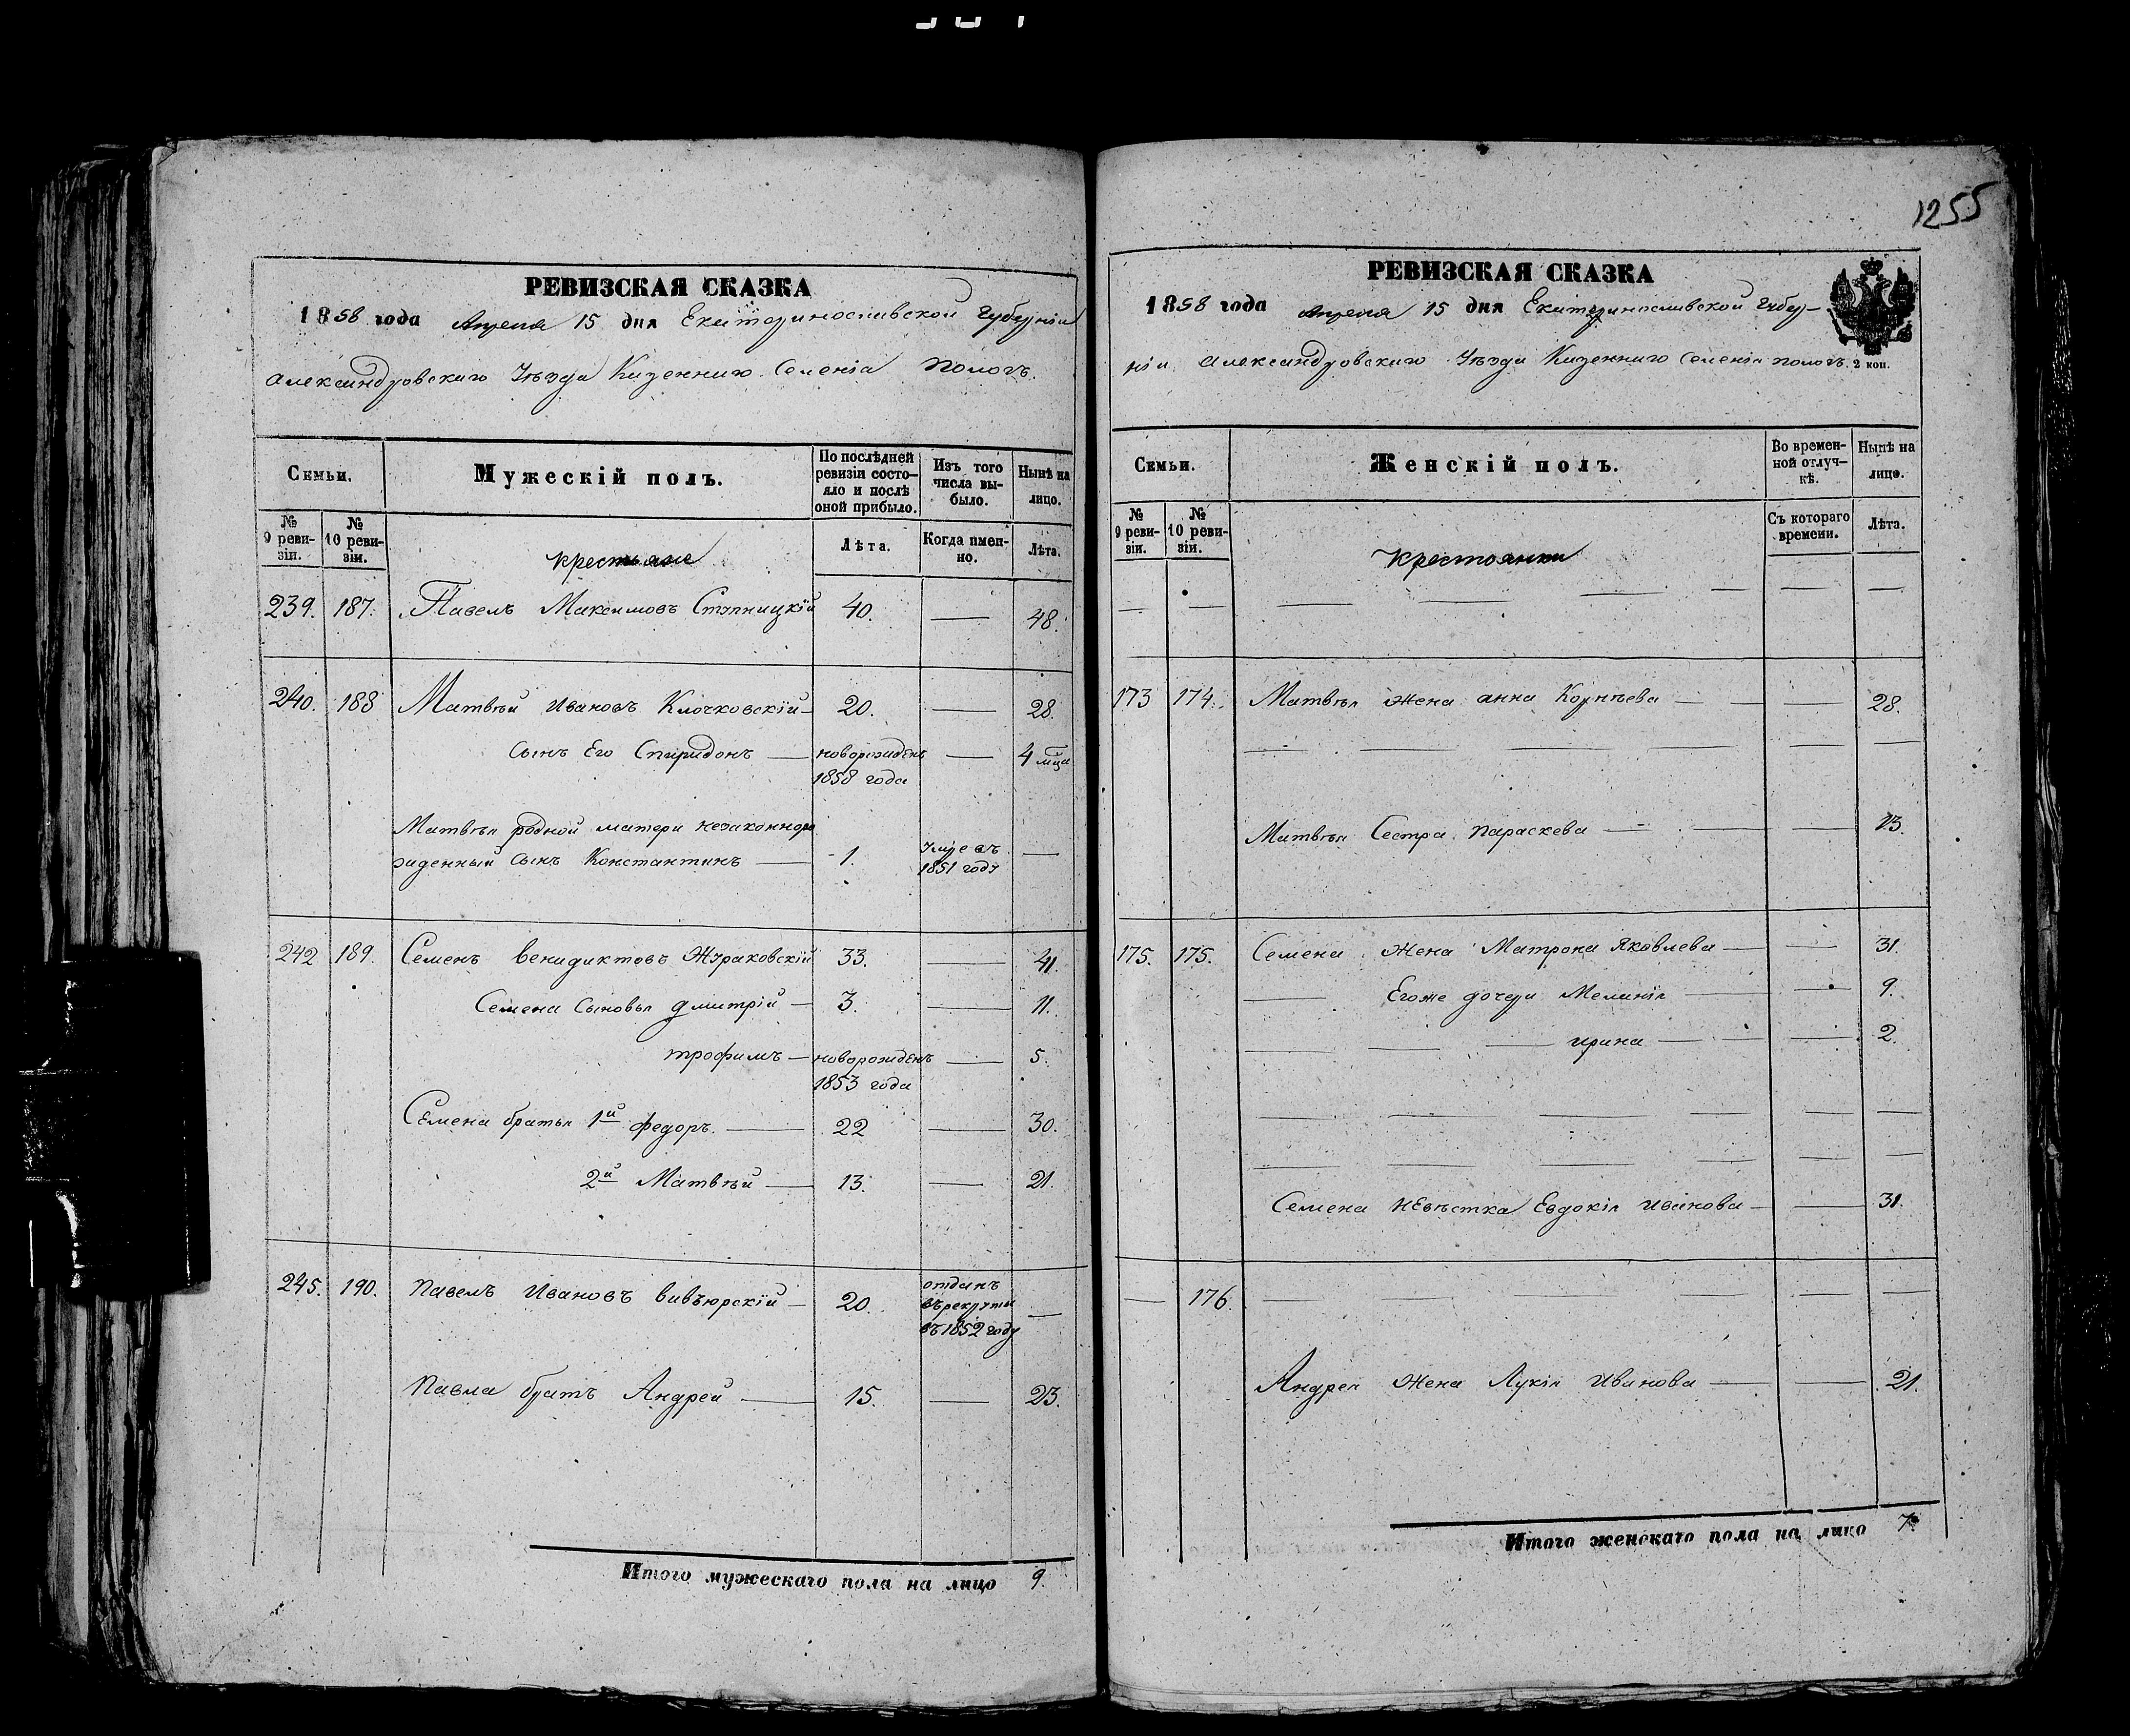 1255
РЕВИЗСКАЯ СКАЗКА
1858 года Апреля 15 дня Екатеринославской Губерніи
Александровскаго Уѣзда Казеннаго Селенія Пологъ.
Семьи.
Мужескій полъ.
По послѣдней ревизіи состояло и послѣ оной прибыло.
Изъ того числа выбыло.
Нынѣ на лицо.
№ 9 ревизіи.
№ 10 ревизіи.
Лѣта.
Когда именно.
Лѣта.
крестьяне
239. 187. Павелъ Максимовъ 40. — 48.
240. 188 Матвѣй Ивановъ Клочковскій — 20. — 28.
сынъ Его Спиридонъ — новорожденъ — 4 мца
1858 года
Матвѣя родной матери незаконноро
жденный сынъ Константинъ — 1. умре въ —
1851 году
242 189. Семенъ Венидиктовъ Жураковскій 33. — 41.
Семена сыновья Дмитрій — 3. — 11.
трофимъ — новорожденъ — 5.
1853 года
Семена братья 1й федоръ. — 22 — 30.
2й Матвѣй — 13. — 21.
245. 190. Павелъ Ивановъ — 20. отданъ —
въ рекруты
въ 1852 году
Павла братъ Андрей — 15. — 23.
Итого мужескаго пола на лицо 9.
РЕВИЗСКАЯ СКАЗКА
1858 года Апреля 15 дня Екатеринославской Губер-
ніи Александровскаго Уѣзда Казеннаго Селенія Пологъ. 2 коп.
Семьи.
Женскій полъ.
Во временной отлучкѣ.
Нынѣ на лицо.
№ 9 ревизіи.
№ 10 ревизіи.
Съ котораго времени.
Лѣта.
крестьянки
173 174. Матвѣя жена анна Корнѣева — — 28.
Матвѣя Сестра Параскева — — 13.
175. 175. Семена жена Матрона Яковлева — — 31.
Егоже дочери Меланія — — 9.
ирина — — 2.
Семена невѣстка Евдокія Иванова — — 31.
— 176.
Андрея жена Лукія Иванова — — 21.
Итого женскаго пола на лицо 7.